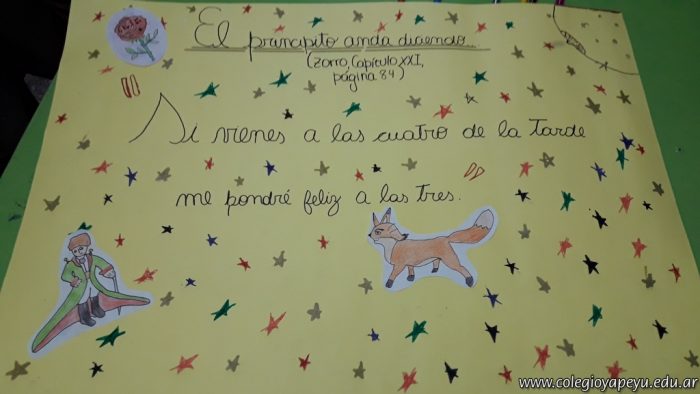 El principito anda diciendo...
(Zorro, Capítulo XXI,
página 84)
"Si vienes a las cuatro de la tarde
me pondré feliz a las tres.
"
www.colegioyapeyu.edu.ar